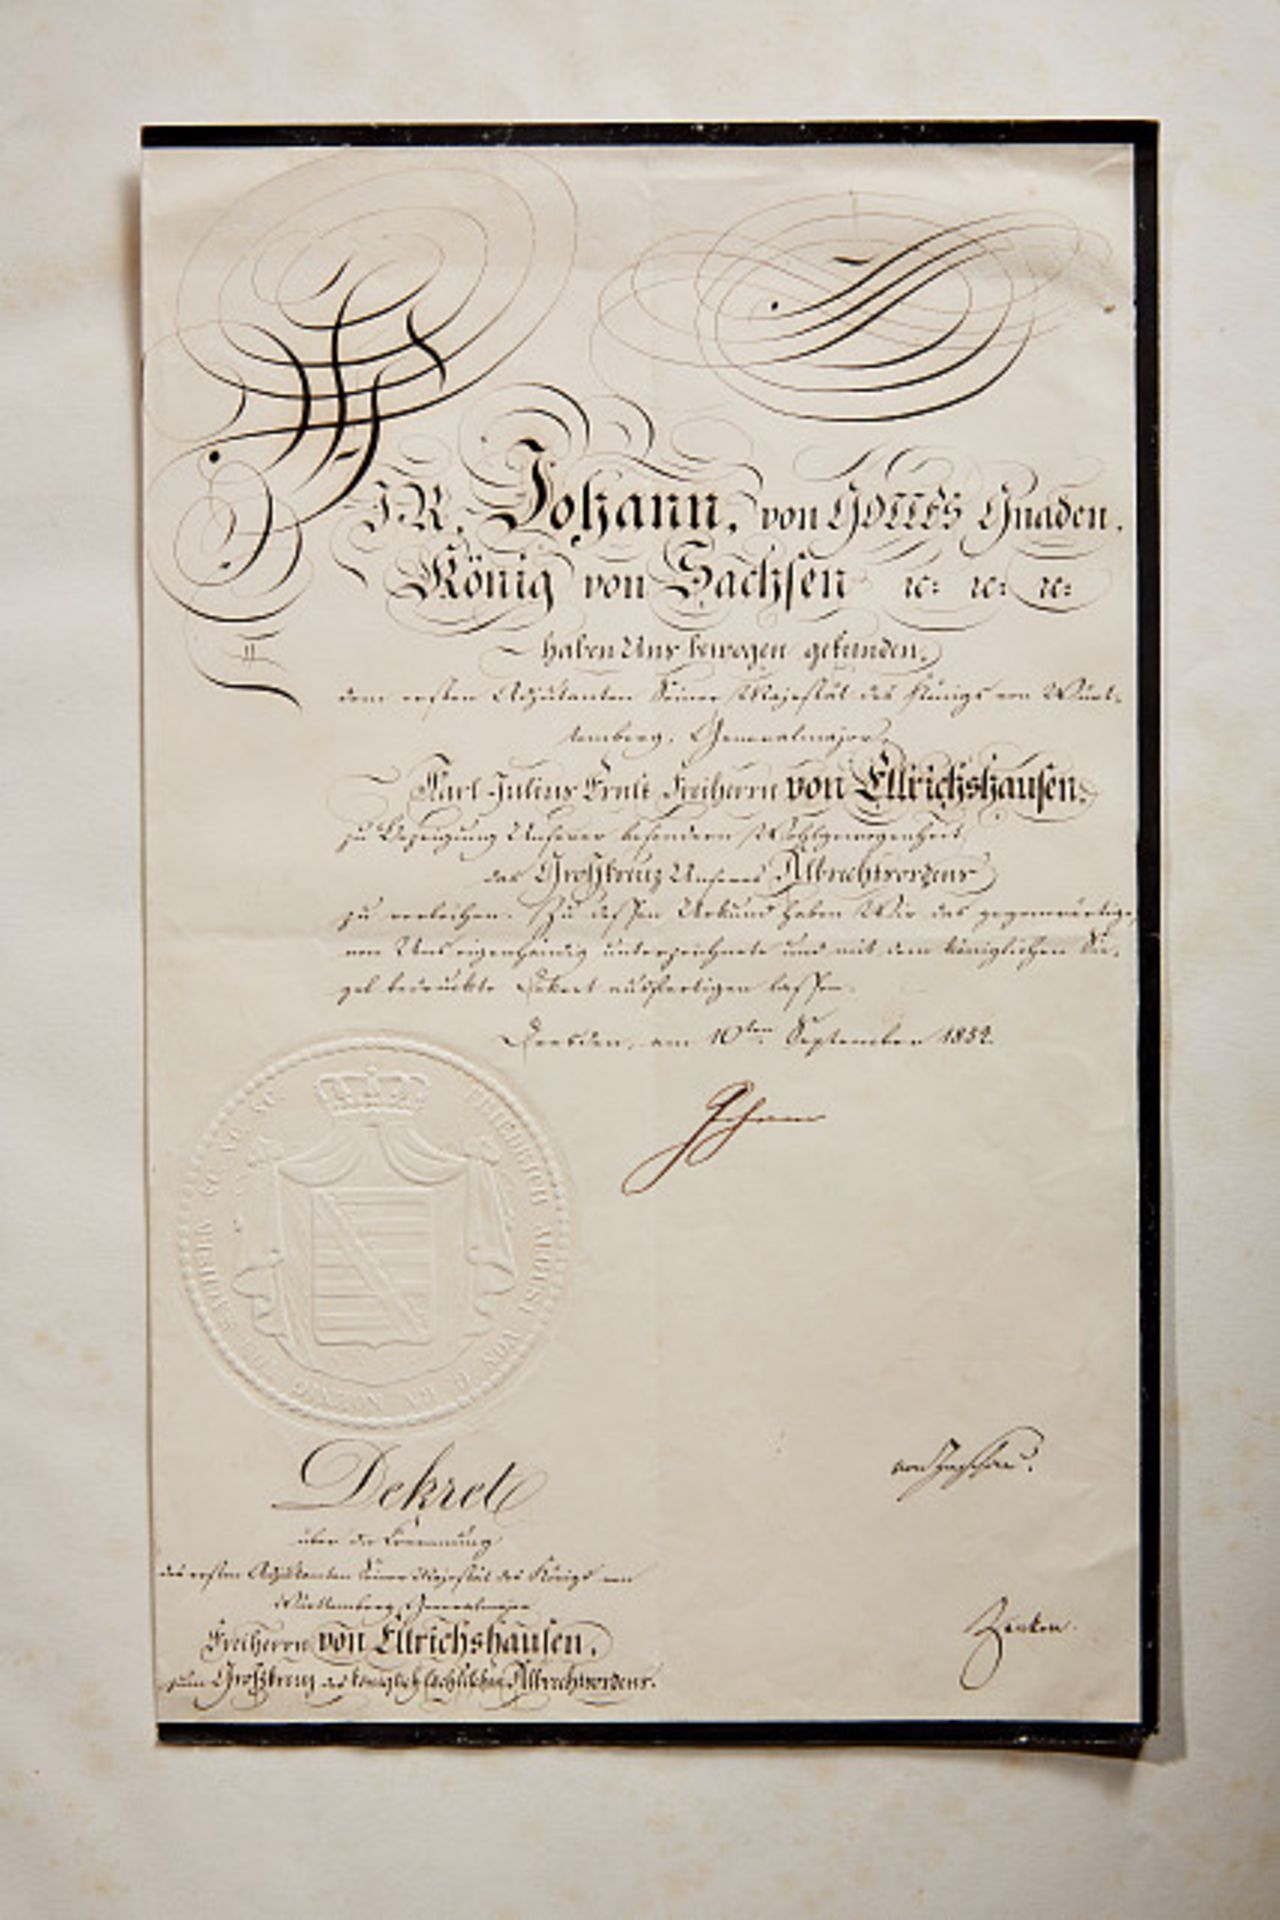 WIR, Johann, von GOTTES Gnaden,
König von Sachsen ꝛc: ꝛc: ꝛc:
haben Uns bewogen gefunden,
dem ersten Adjutanten Seiner Majestät des Königs von Würt-
temberg, Generalmajor
Karl Julius Ernst Freiherrn von Ellrichshausen,
zu Bezeugung Unserer besondern Wohlgewogenheit,
das Großkreuz Unseres Albrechtsordens
zu verleihen. Zu dessen Urkund haben Wir das gegenwärtige,
von Uns eigenhändig unterzeichnete und mit dem königlichen Sie-
gel bedruckte Dekret ausfertigen lassen.
Dresden, am 10ten September 1854.
Johann
FRIEDRICH AUGUST VON G. G. KŒNIG
von Zeschau.
Dekret
über die Ernennung
des ersten Adjutanten Seiner Majestät des Königs von
Württemberg, Generalmajor
Freiherrn von Ellrichshausen,
zum Großkreuz des königlich sächsischen Albrechtsordens.